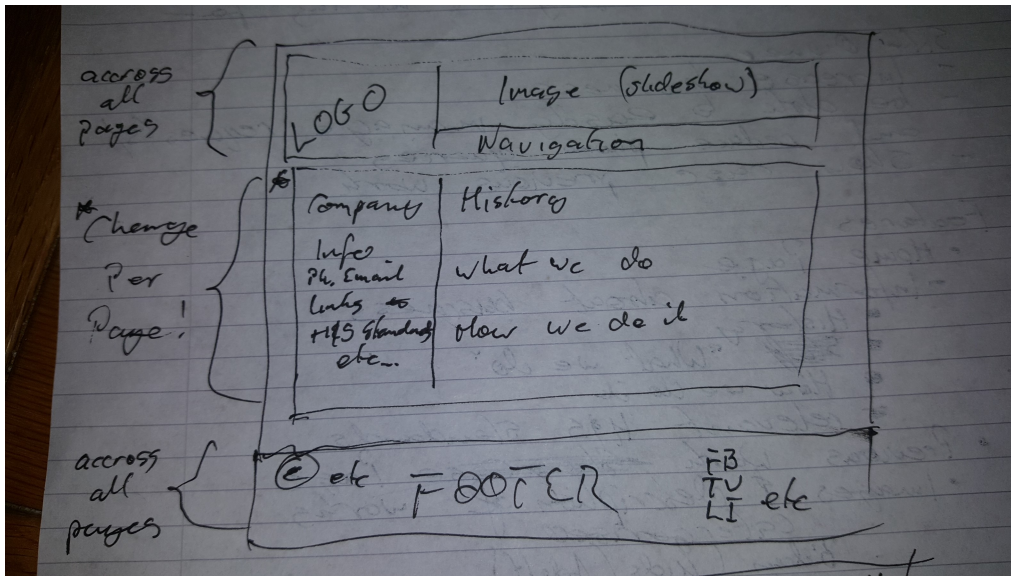 accross
all
pages
LOGO
Image (slideshow)
Navigation
* Change
Per
Page!
*
Company
Info
Ph. Email
links
H&S Standards
etc...
History
what we do
How we do it
accross
all
pages
© etc
FOOTER
FB
TW
LI etc